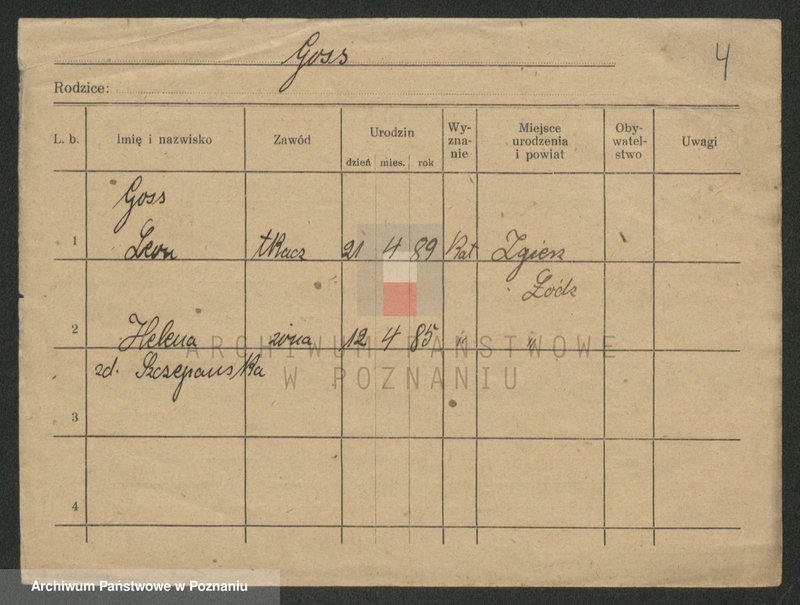 Goss
4
Rodzice:
L. b. Imię i nazwisko Zawód Urodzin dzień mies. rok Wy-zna-nie Miejsce urodzenia i powiat Oby-watel-stwo Uwagi
Goss
1 Leon tkacz 21 4 89 kat Zgierz
Łódz
2 Helena żona 12 4 85 " "
zd. Szczepanska
3
4
ARCHIWUM PAŃSTWOWE
W POZNANIU
Archiwum Państwowe w Poznaniu